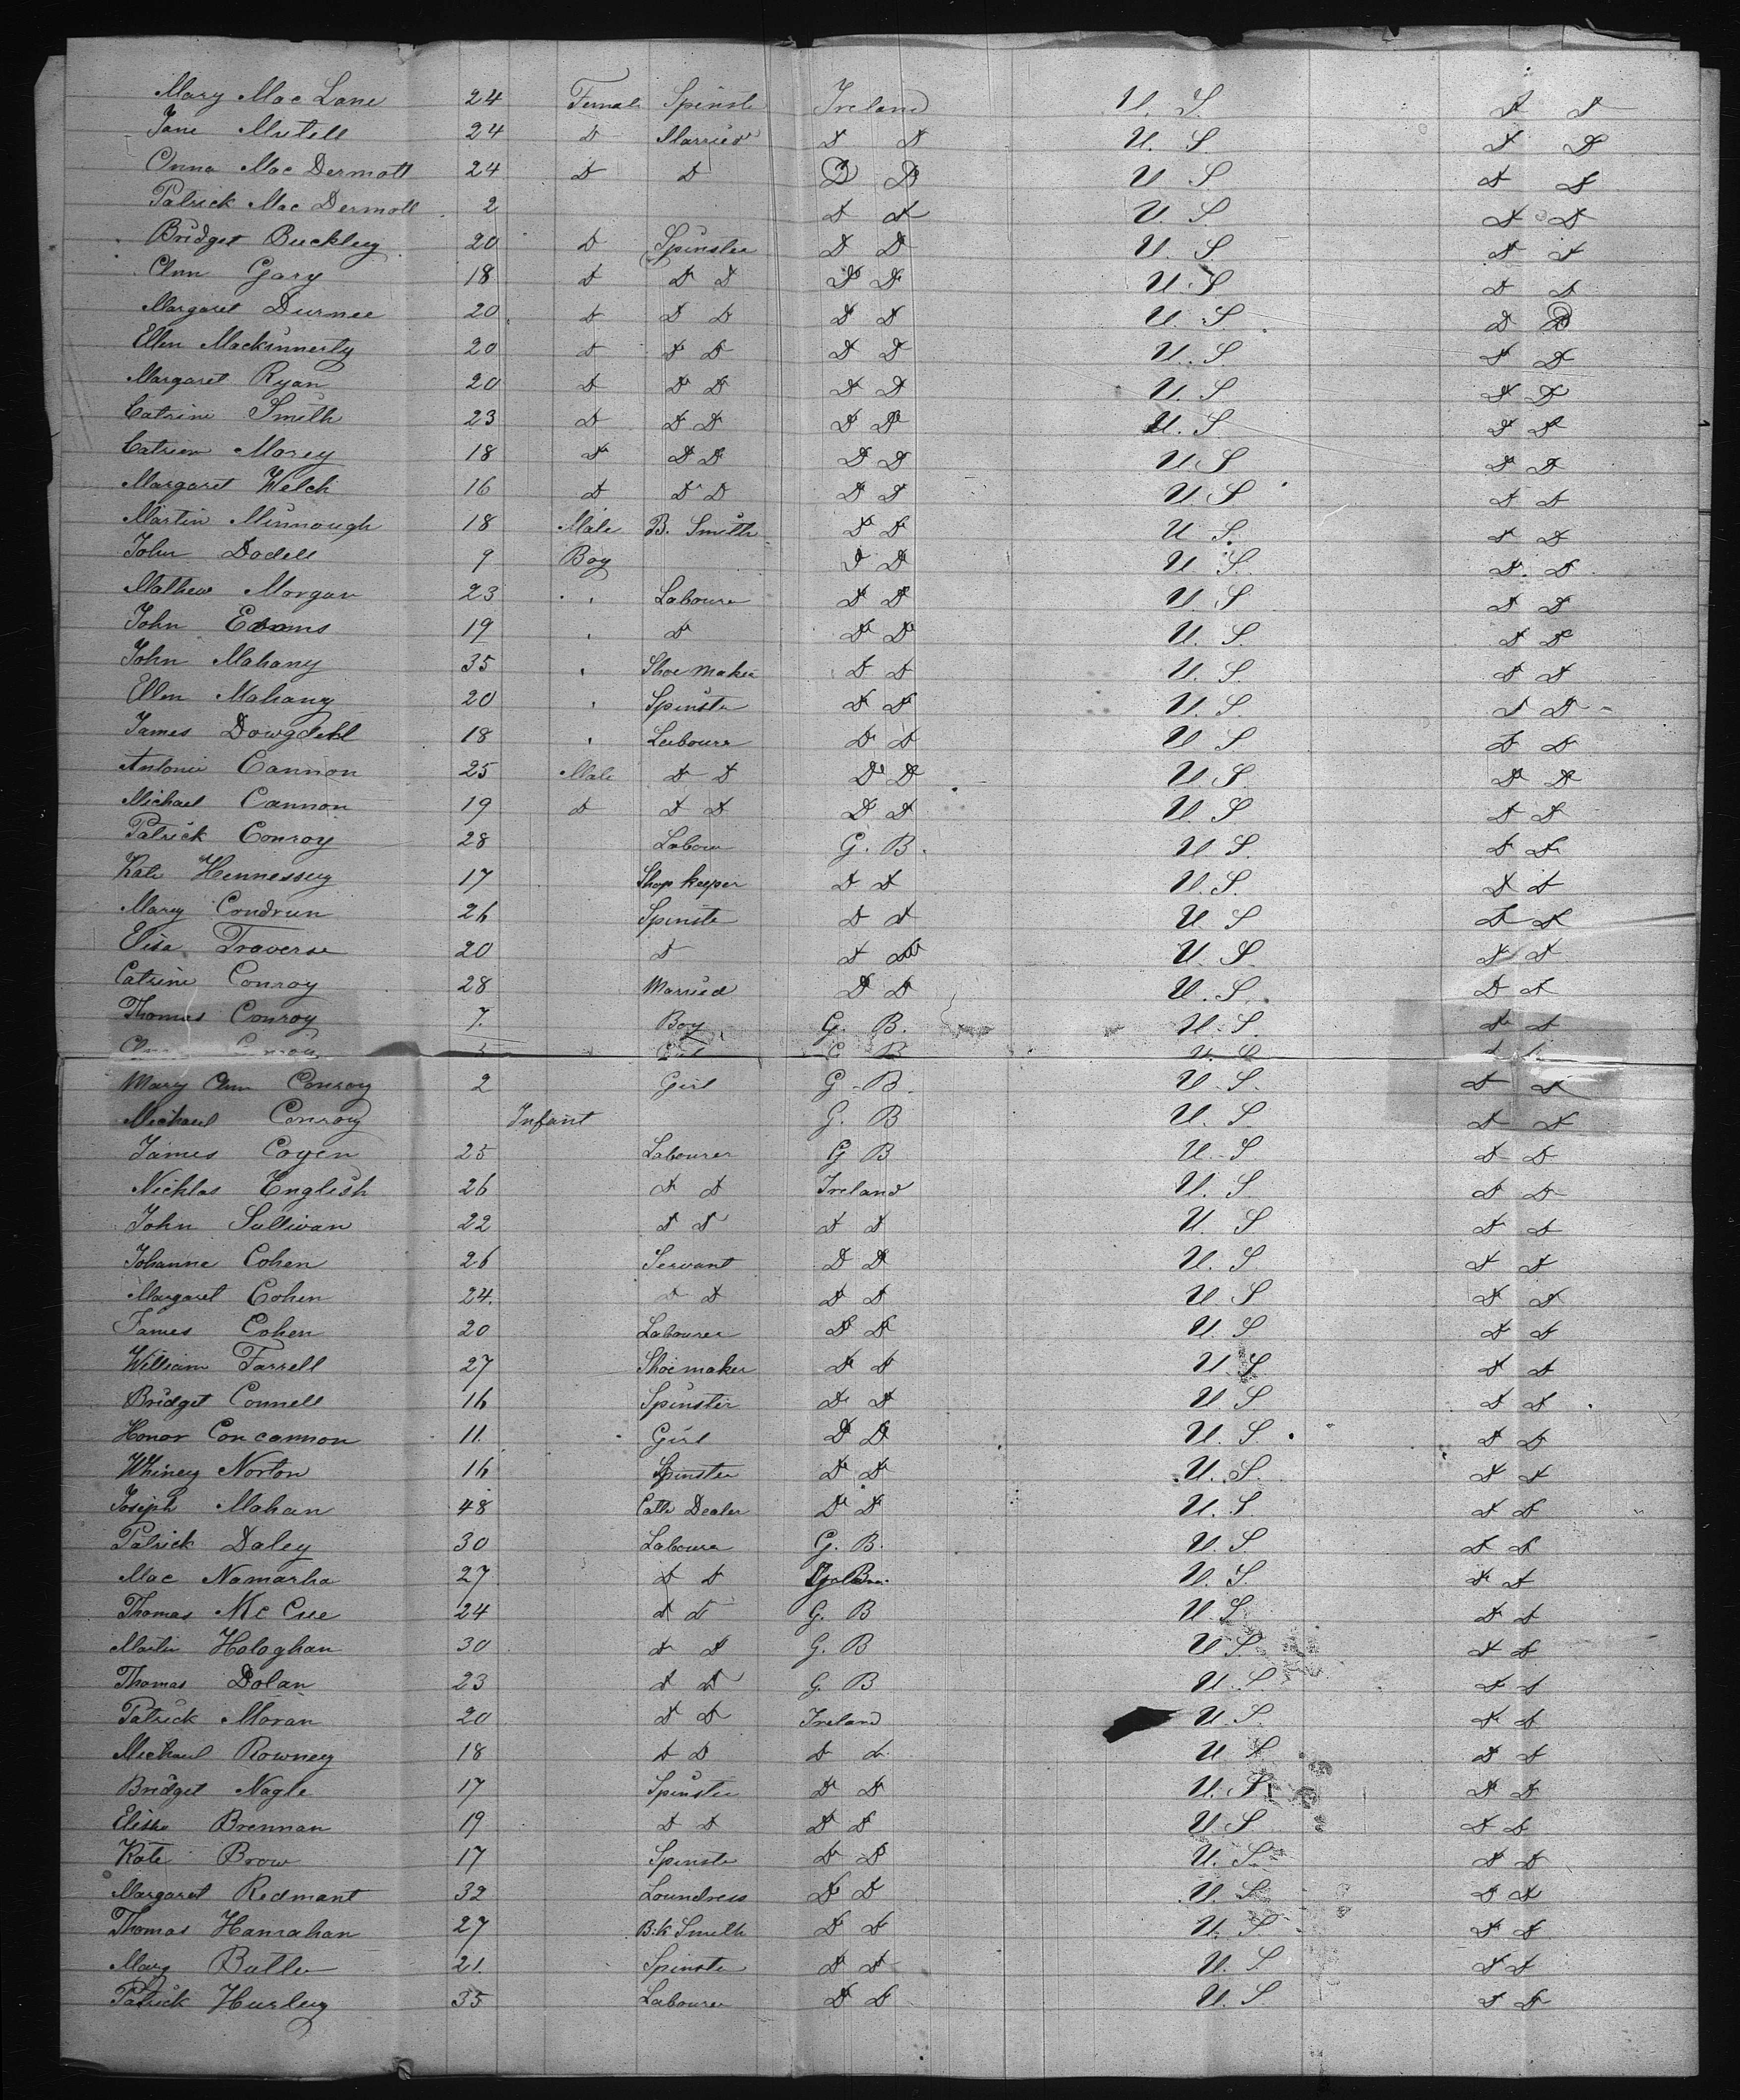 Mary Mac Lane 24 Female Spinst Ireland U. S. D D
Jane Mutell 24 D Married D D U. S. D D
Anna Mac Dermott 24 D D D D U S D D
Patrick Mac Dermott 2 D D U. S D D
Bridget Buckley 20 D Spinster D D U. S D D
Ann Gary 18 D D D D D U S D D
Margaret Durnee 20 D D D D D U. S D D
Ellen Mackinnerty 20 D D D D D U. S D D
Margaret Ryan 20 D D D D D U. S D D
Catrine Smith 23 D D D D D U. S D D
Catrien Morey 18 D D D D D U. S D D
Margaret Welch 16 D D D D D U. S D D
Martin Minnough 18 Male B. Smith D D U S. D D
John Dodell 9 Boy D D U S D D
Mathew Morgan 23 " Laboure D D U. S D D
John Evans 19 " D D D U. S. D D
John Mahany 35 " Shoe maker D D U. S. D D
Ellen Mahany 20 " Spinste D D U. S. D D
James Dowgdehl 18 " Laboure D D U S D D
Antonie Cannon 25 Male D D D D U S. D D
Michael Cannon 19 D D D D D U S D D
Patrick Conroy 28 Labour G. B. U S. D D
Kate Hennessey 17 Shop keeper D D U. S. D D
Mary Condrun 26 Spinste D D U. S D D
Elisa Traverse 20 D D D U S D D
Catrine Conroy 28 Married D D U. S. D D
Thomas Conroy 7. Boy G. B. U. S. D D
Conroy 5 Girl G B U. S. D D
Mary Ann Conroy 2 Girl G. B. U. S. D D
Michael Conroy Infant G. B U. S. D D
James Coyen 25 Labourer G B U. S D D
Nicklas English 26 D D Ireland U. S D D
John Sullivan 22 D D D D U S D D
Johanne Cohen 26 Servant D D U. S. D D
Margaret Cohen 24. D D D D U S D D
James Cohen 20 Labourer D D U. S D D
William Farrell 27 Shoemaker D D U S D D
Bridget Connell 16 Spinster D D U S D D
Honor Concannon 11. Girl D D U. S. D D
Whiney Norton 16 Spinster D D U. S. D D
Joseph Mahan 48 Catle Dealer D D U. S. D D
Patrick Daley 30 Laboure G. B. U. S. D D
Mac Namarha 27 D D U. S. D D
Thomas Mc Cue 24 D D G. B U. S D D
Martin Hologhan 30 D D G. B U S. D D
Thomas Dolan 23 D D G. B U. S D D
Patrick Moran 20 D D Ireland U. S. D D
Michael Rowney 18 D D D D U S D D
Bridget Nagle 17 Spinster D D U. S. D D
Elisha Brennan 19 D D D D U S D D
Kate Brow 17 Spinste D D U. S. D D
Margaret Redmant 32 Loundress D D U. S D D
Thomas Hanrahan 27 B.k Smith D D U. S. D D
Mary Butler 21. Spinste D D U. S D D
Patrick Hurley 35 Labourer D D U. S D D